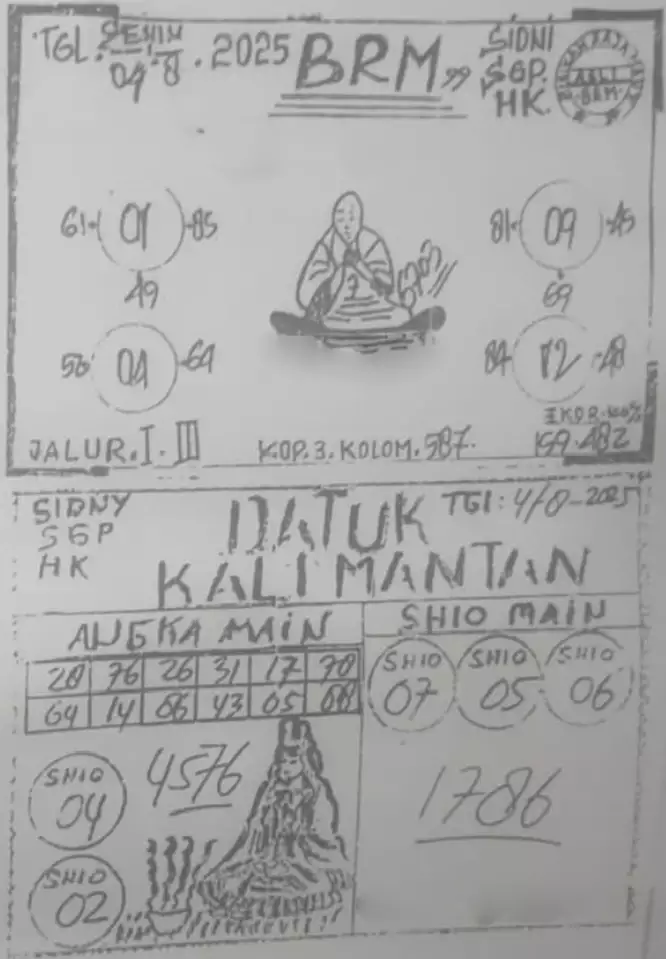 TGL. SENIN 04-8. 2025
BRM
SIDNI
SGP.
HK.
BRM
61 01 85
49
81 09 45
69
56 04 64
84 12 48
5703
7
JALUR. I. III
KOP. 3. KOLOM. 587.
EKOR. 100%
159. 482
SIDNY
SGP
HK
DATUK
KALIMANTAN
TGl: 4/8-2025
ANGKA MAIN
20 76 26 31 17 70
64 14 06 43 05 08
SHIO MAIN
SHIO 07
SHIO 05
SHIO 06
SHIO 04
SHIO 02
4576
1786